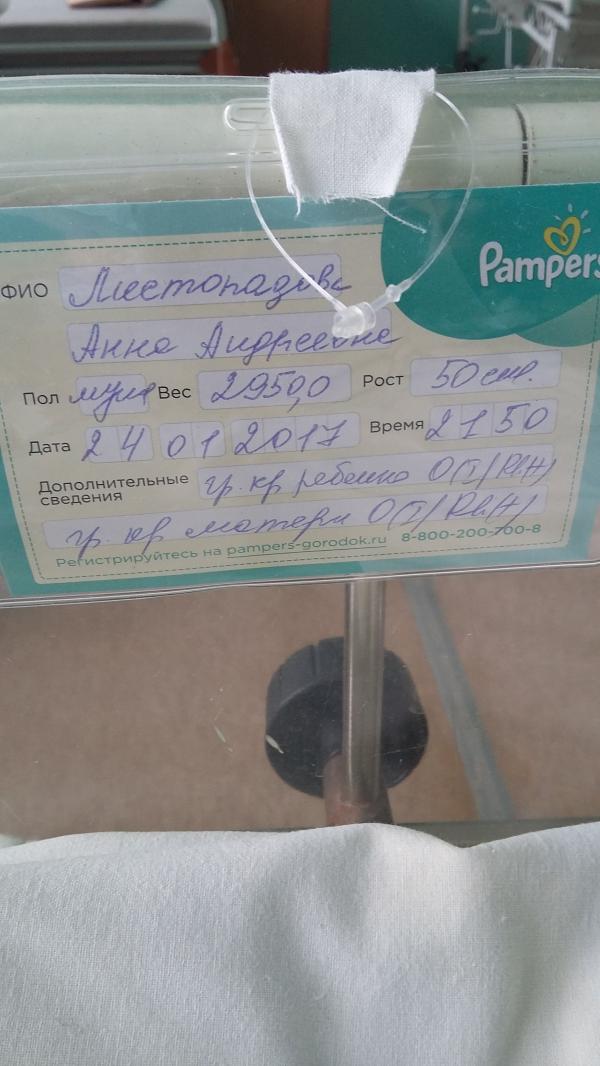 Pampers
ФИО Листопадова
Анна Андреевна
Пол муж Вес 2950,0 Рост 50 см.
Дата 24 01 2017 Время 21 50
Дополнительные сведения гр. кр ребенка O(I) Rh(+)
гр. кр матери O(I) Rh(+)
Регистрируйтесь на pampers-gorodok.ru 8-800-200-700-8